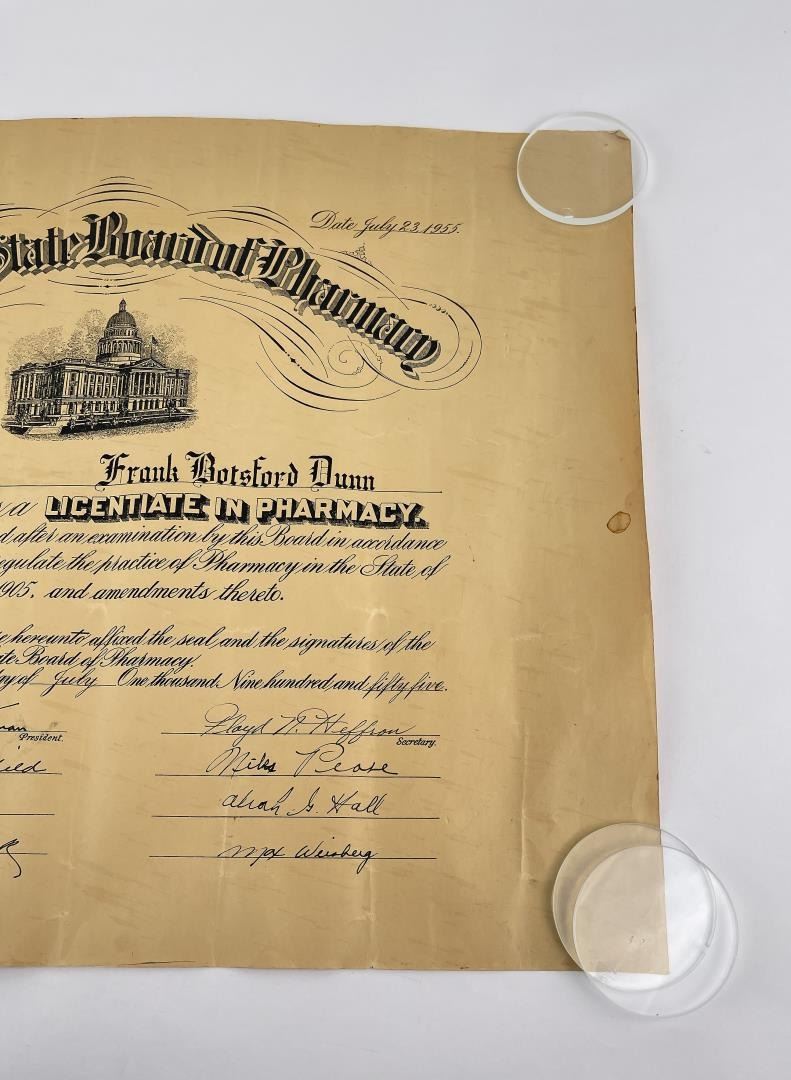 Date July 23, 1955.
State Board of Pharmacy
Frank Botsford Dunn
a LICENTIATE IN PHARMACY.
after an examination by this Board in accordance
regulate the practice of Pharmacy in the State of
1905, and amendments thereto.
hereunto affixed the seal and the signatures of the
Board of Pharmacy.
day of July One thousand Nine hundred and fifty five.
President.
Floyd N. Heffron
Secretary.
Pease
G. Hall
Max Weisberg